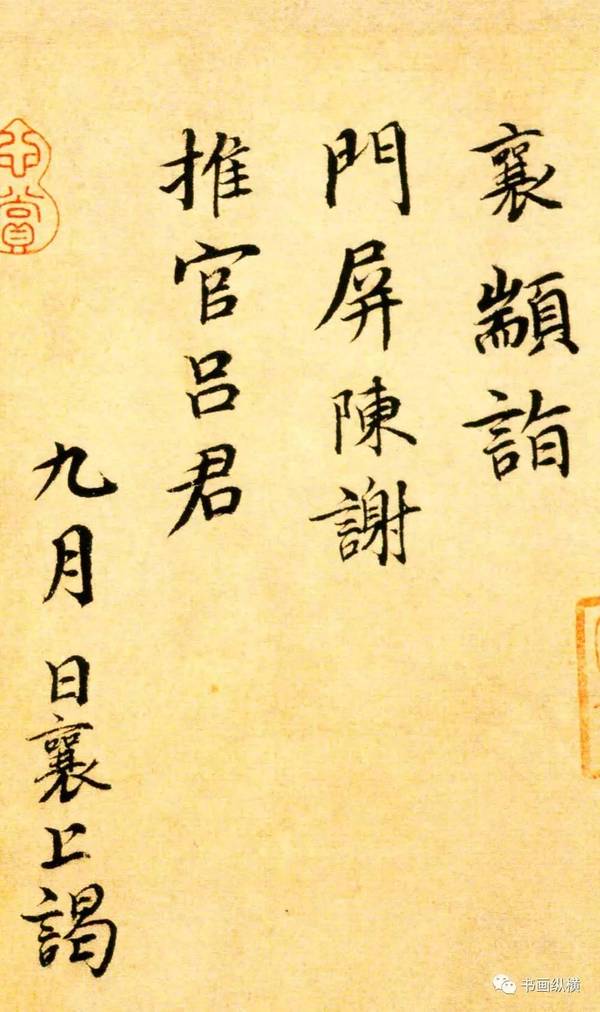 襄顓詣
門屏陳謝
推官呂君
九月 日襄上謁
心賞
书画纵横